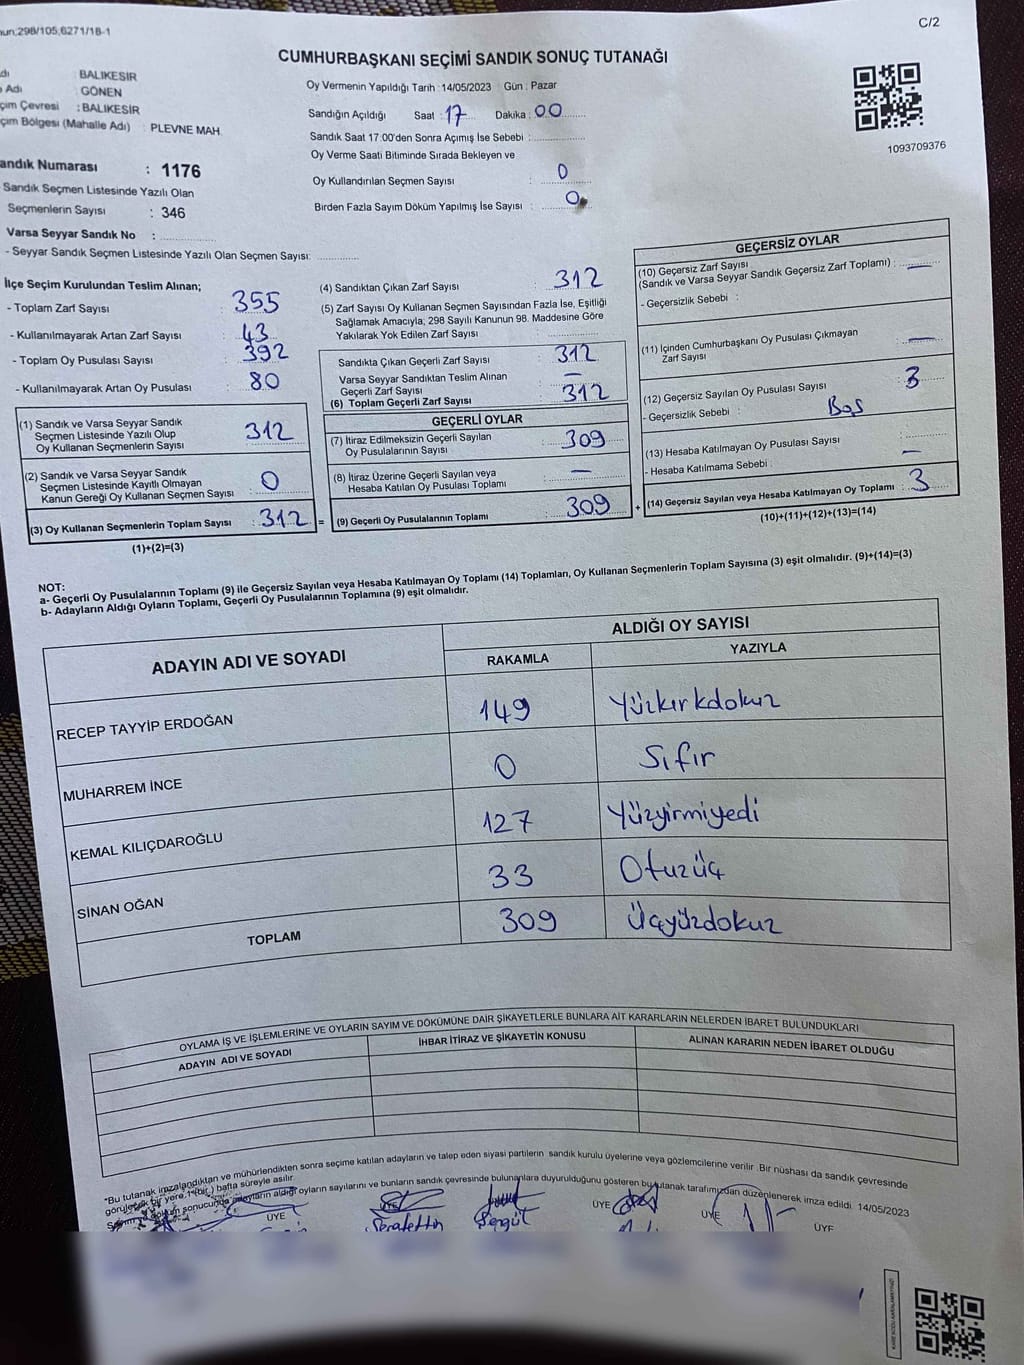 298/105,6271/18-1
C/2
CUMHURBAŞKANI SEÇİMİ SANDIK SONUÇ TUTANAĞI
: BALIKESİR
Adı : GÖNEN
çim Çevresi : BALIKESİR
çim Bölgesi (Mahalle Adı) : PLEVNE MAH.
andık Numarası : 1176
Sandık Seçmen Listesinde Yazılı Olan
Seçmenlerin Sayısı : 346
Varsa Seyyar Sandık No :
- Seyyar Sandık Seçmen Listesinde Yazılı Olan Seçmen Sayısı:
Oy Vermenin Yapıldığı Tarih :14/05/2023 Gün : Pazar
Sandığın Açıldığı Saat : 17 Dakika : 00
Sandık Saat 17:00'den Sonra Açımış İse Sebebi :
Oy Verme Saati Bitiminde Sırada Bekleyen ve
Oy Kullandırılan Seçmen Sayısı : 0
Birden Fazla Sayım Döküm Yapılmış İse Sayısı : 0
1093709376
İlçe Seçim Kurulundan Teslim Alınan;
- Toplam Zarf Sayısı : 355
- Kullanılmayarak Artan Zarf Sayısı : 43
- Toplam Oy Pusulası Sayısı : 392
- Kullanılmayarak Artan Oy Pusulası : 80
(1) Sandık ve Varsa Seyyar Sandık
Seçmen Listesinde Yazılı Olup
Oy Kullanan Seçmenlerin Sayısı : 312
(2) Sandık ve Varsa Seyyar Sandık
Seçmen Listesinde Kayıtlı Olmayan
Kanun Gereği Oy Kullanan Seçmen Sayısı : 0
(3) Oy Kullanan Seçmenlerin Toplam Sayısı : 312 =
(1)+(2)=(3)
(4) Sandıktan Çıkan Zarf Sayısı : 312
(5) Zarf Sayısı Oy Kullanan Seçmen Sayısından Fazla İse, Eşitliği
Sağlamak Amacıyla; 298 Sayılı Kanunun 98. Maddesine Göre
Yakılarak Yok Edilen Zarf Sayısı :
Sandıkta Çıkan Geçerli Zarf Sayısı : 312
Varsa Seyyar Sandıktan Teslim Alınan
Geçerli Zarf Sayısı : —
(6) Toplam Geçerli Zarf Sayısı : 312
GEÇERLİ OYLAR
(7) İtiraz Edilmeksizin Geçerli Sayılan
Oy Pusulalarının Sayısı : 309
(8) İtiraz Üzerine Geçerli Sayılan veya
Hesaba Katılan Oy Pusulası Toplamı : —
(9) Geçerli Oy Pusulalarının Toplamı : 309 +
GEÇERSİZ OYLAR
(10) Geçersiz Zarf Sayısı
(Sandık ve Varsa Seyyar Sandık Geçersiz Zarf Toplamı) : —
- Geçersizlik Sebebi :
(11) İçinden Cumhurbaşkanı Oy Pusulası Çıkmayan
Zarf Sayısı : —
(12) Geçersiz Sayılan Oy Pusulası Sayısı : 3
- Geçersizlik Sebebi : Boş
(13) Hesaba Katılmayan Oy Pusulası Sayısı : —
- Hesaba Katılmama Sebebi :
(14) Geçersiz Sayılan veya Hesaba Katılmayan Oy Toplamı : 3
(10)+(11)+(12)+(13)=(14)
NOT:
a- Geçerli Oy Pusulalarının Toplamı (9) ile Geçersiz Sayılan veya Hesaba Katılmayan Oy Toplamı (14) Toplamları, Oy Kullanan Seçmenlerin Toplam Sayısına (3) eşit olmalıdır. (9)+(14)=(3)
b- Adayların Aldığı Oyların Toplamı, Geçerli Oy Pusulalarının Toplamına (9) eşit olmalıdır.
ADAYIN ADI VE SOYADI
ALDIĞI OY SAYISI
RAKAMLA YAZIYLA
RECEP TAYYİP ERDOĞAN 149 Yüzkırkdokuz
MUHARREM İNCE 0 Sıfır
KEMAL KILIÇDAROĞLU 127 Yüzyirmiyedi
SİNAN OĞAN 33 Otuzüç
TOPLAM 309 Üçyüzdokuz
OYLAMA İŞ VE İŞLEMLERİNE VE OYLARIN SAYIM VE DÖKÜMÜNE DAİR ŞİKAYETLERLE BUNLARA AİT KARARLARIN NELERDEN İBARET BULUNDUKLARI
ADAYIN ADI VE SOYADI İHBAR İTİRAZ VE ŞİKAYETİN KONUSU ALINAN KARARIN NEDEN İBARET OLDUĞU
"Bu tutanak imzalandıktan ve mühürlendikten sonra seçime katılan adayların ve talep eden siyasi partilerin sandık kurulu üyelerine veya gözlemcilerine verilir. Bir nüshası da sandık çevresinde
görülecek bir yere 1 (bir) hafta süreyle asılır.
sonucunda adayların aldığı oyların sayılarını ve bunların sandık çevresinde bulunanlara duyurulduğunu gösteren bu tutanak tarafımızdan düzenlenerek imza edildi. 14/05/2023
ÜYE ÜYE ÜYE ÜYE ÜYE
Serafettin Şengül